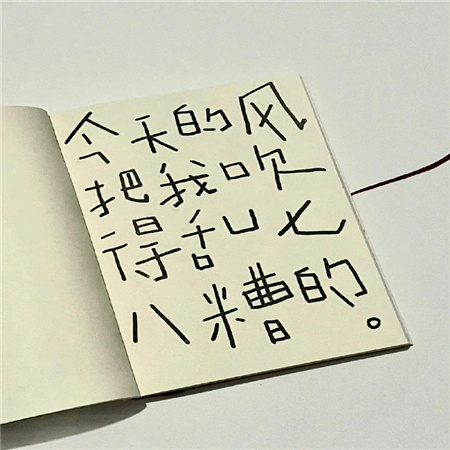 今天的风
把我吹
得乱七
八糟的。